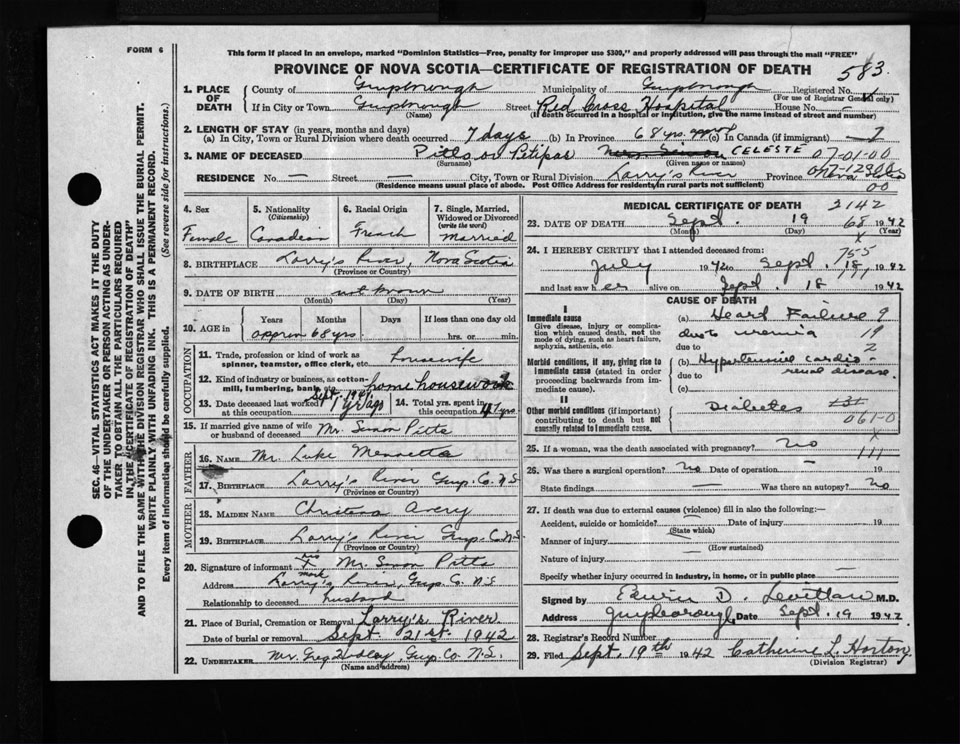 FORM 6
This form if placed in an envelope, marked "Dominion Statistics—Free, penalty for improper use $300," and properly addressed will pass through the mail "FREE"
PROVINCE OF NOVA SCOTIA—CERTIFICATE OF REGISTRATION OF DEATH
583.
1. PLACE OF DEATH
County of Guysborough Municipality of Guysborough Registered No.
(For use of Registrar General only)
If in City or Town Guysborough Street Red Cross Hospital House No. —
(Name) (If death occurred in a hospital or institution, give the name instead of street and number)
2. LENGTH OF STAY (in years, months and days)
(a) In City, Town or Rural Division where death occurred 7 days (b) In Province 68 yrs. approx (c) In Canada (if immigrant)
3. NAME OF DECEASED Pitts or Petipas Mrs. Simon CELESTE 07-01-00
(Surname) (Given name or names)
RESIDENCE No. — Street — City, Town or Rural Division Larry's River Province
(Residence means usual place of abode. Post Office Address for residents in rural parts not sufficient)
00
4. Sex
Female
5. Nationality
(Citizenship)
Canadian
6. Racial Origin
French
7. Single, Married, Widowed or Divorced
(write the word)
Married
8. BIRTHPLACE Larry's River, Nova Scotia
(Province or Country)
9. DATE OF BIRTH not known
(Month) (Day) (Year)
10. AGE in
Years Months Days If less than one day old
approx 68 yrs. hrs. or min.
OCCUPATION
11. Trade, profession or kind of work as spinner, teamster, office clerk, etc. housewife
12. Kind of industry or business, as cotton-mill, lumbering, bank, etc. home housework
13. Date deceased last worked at this occupation Sept. 1941 1 yr ago
14. Total yrs. spent in this occupation 47 yrs.
15. If married give name of wife or husband of deceased Mr. Simon Pitts
FATHER
16. Name Mr. Luke Mennetta
17. Birthplace Larry's River Guy. Co. N.S
(Province or Country)
MOTHER
18. Maiden Name Christena Avery
19. Birthplace Larry's River Guy. Co. N.S.
(Province or Country)
20. Signature of informant his X mark Mr. Simon Pitts
Address Larry's River, Guy. Co. N.S
Relationship to deceased husband
21. Place of Burial, Cremation or Removal Larry's River
Date of burial or removal Sept. 21st. 1942
22. Undertaker Mr. Greg. Guy. Co. N.S.
(Name and address)
MEDICAL CERTIFICATE OF DEATH 2142
23. DATE OF DEATH Sept 19 68 1942
(Month) (Day) (Year)
24. I HEREBY CERTIFY that I attended deceased from: 755
July 1942 to Sept. 18, 1942
and last saw her alive on Sept. 18 1942
CAUSE OF DEATH
I
Immediate cause
Give disease, injury or complication which caused death, not the mode of dying, such as heart failure, asphyxia, asthenia, etc.
(a) Heart Failure 9
due to uremia 19
due to 2
Morbid conditions, if any, giving rise to immediate cause (stated in order proceeding backwards from immediate cause).
(b) Hypertensive cardio-renal disease.
due to
(c)
II
Other morbid conditions (if important) contributing to death but not causally related to immediate cause.
Diabetes 131
061-0
25. If a woman, was the death associated with pregnancy? no 111
26. Was there a surgical operation? No Date of operation — 19
State findings — Was there an autopsy? No
27. If death was due to external causes (violence) fill in also the following:—
Accident, suicide or homicide? Date of injury 19
(State which)
Manner of injury
(How sustained)
Nature of injury
Specify whether injury occurred in industry, in home, or in public place —
Signed by Edwin D. M.D.
Address Guysborough, Date Sept. 19 1942
28. Registrar's Record Number
29. Filed Sept. 19th 1942 Catherine L. Horton
(Division Registrar)
SEC. 46—VITAL STATISTICS ACT MAKES IT THE DUTY
OF THE UNDERTAKER OR PERSON ACTING AS UNDER-
TAKER TO OBTAIN ALL THE PARTICULARS REQUIRED
IN THE "CERTIFICATE OF REGISTRATION OF DEATH"
AND TO FILE THE SAME WITH THE DIVISION REGISTRAR WHO SHALL ISSUE THE BURIAL PERMIT.
WRITE PLAINLY WITH UNFADING INK. THIS IS A PERMANENT RECORD.
Every item of information should be carefully supplied. (See reverse side for instructions.)